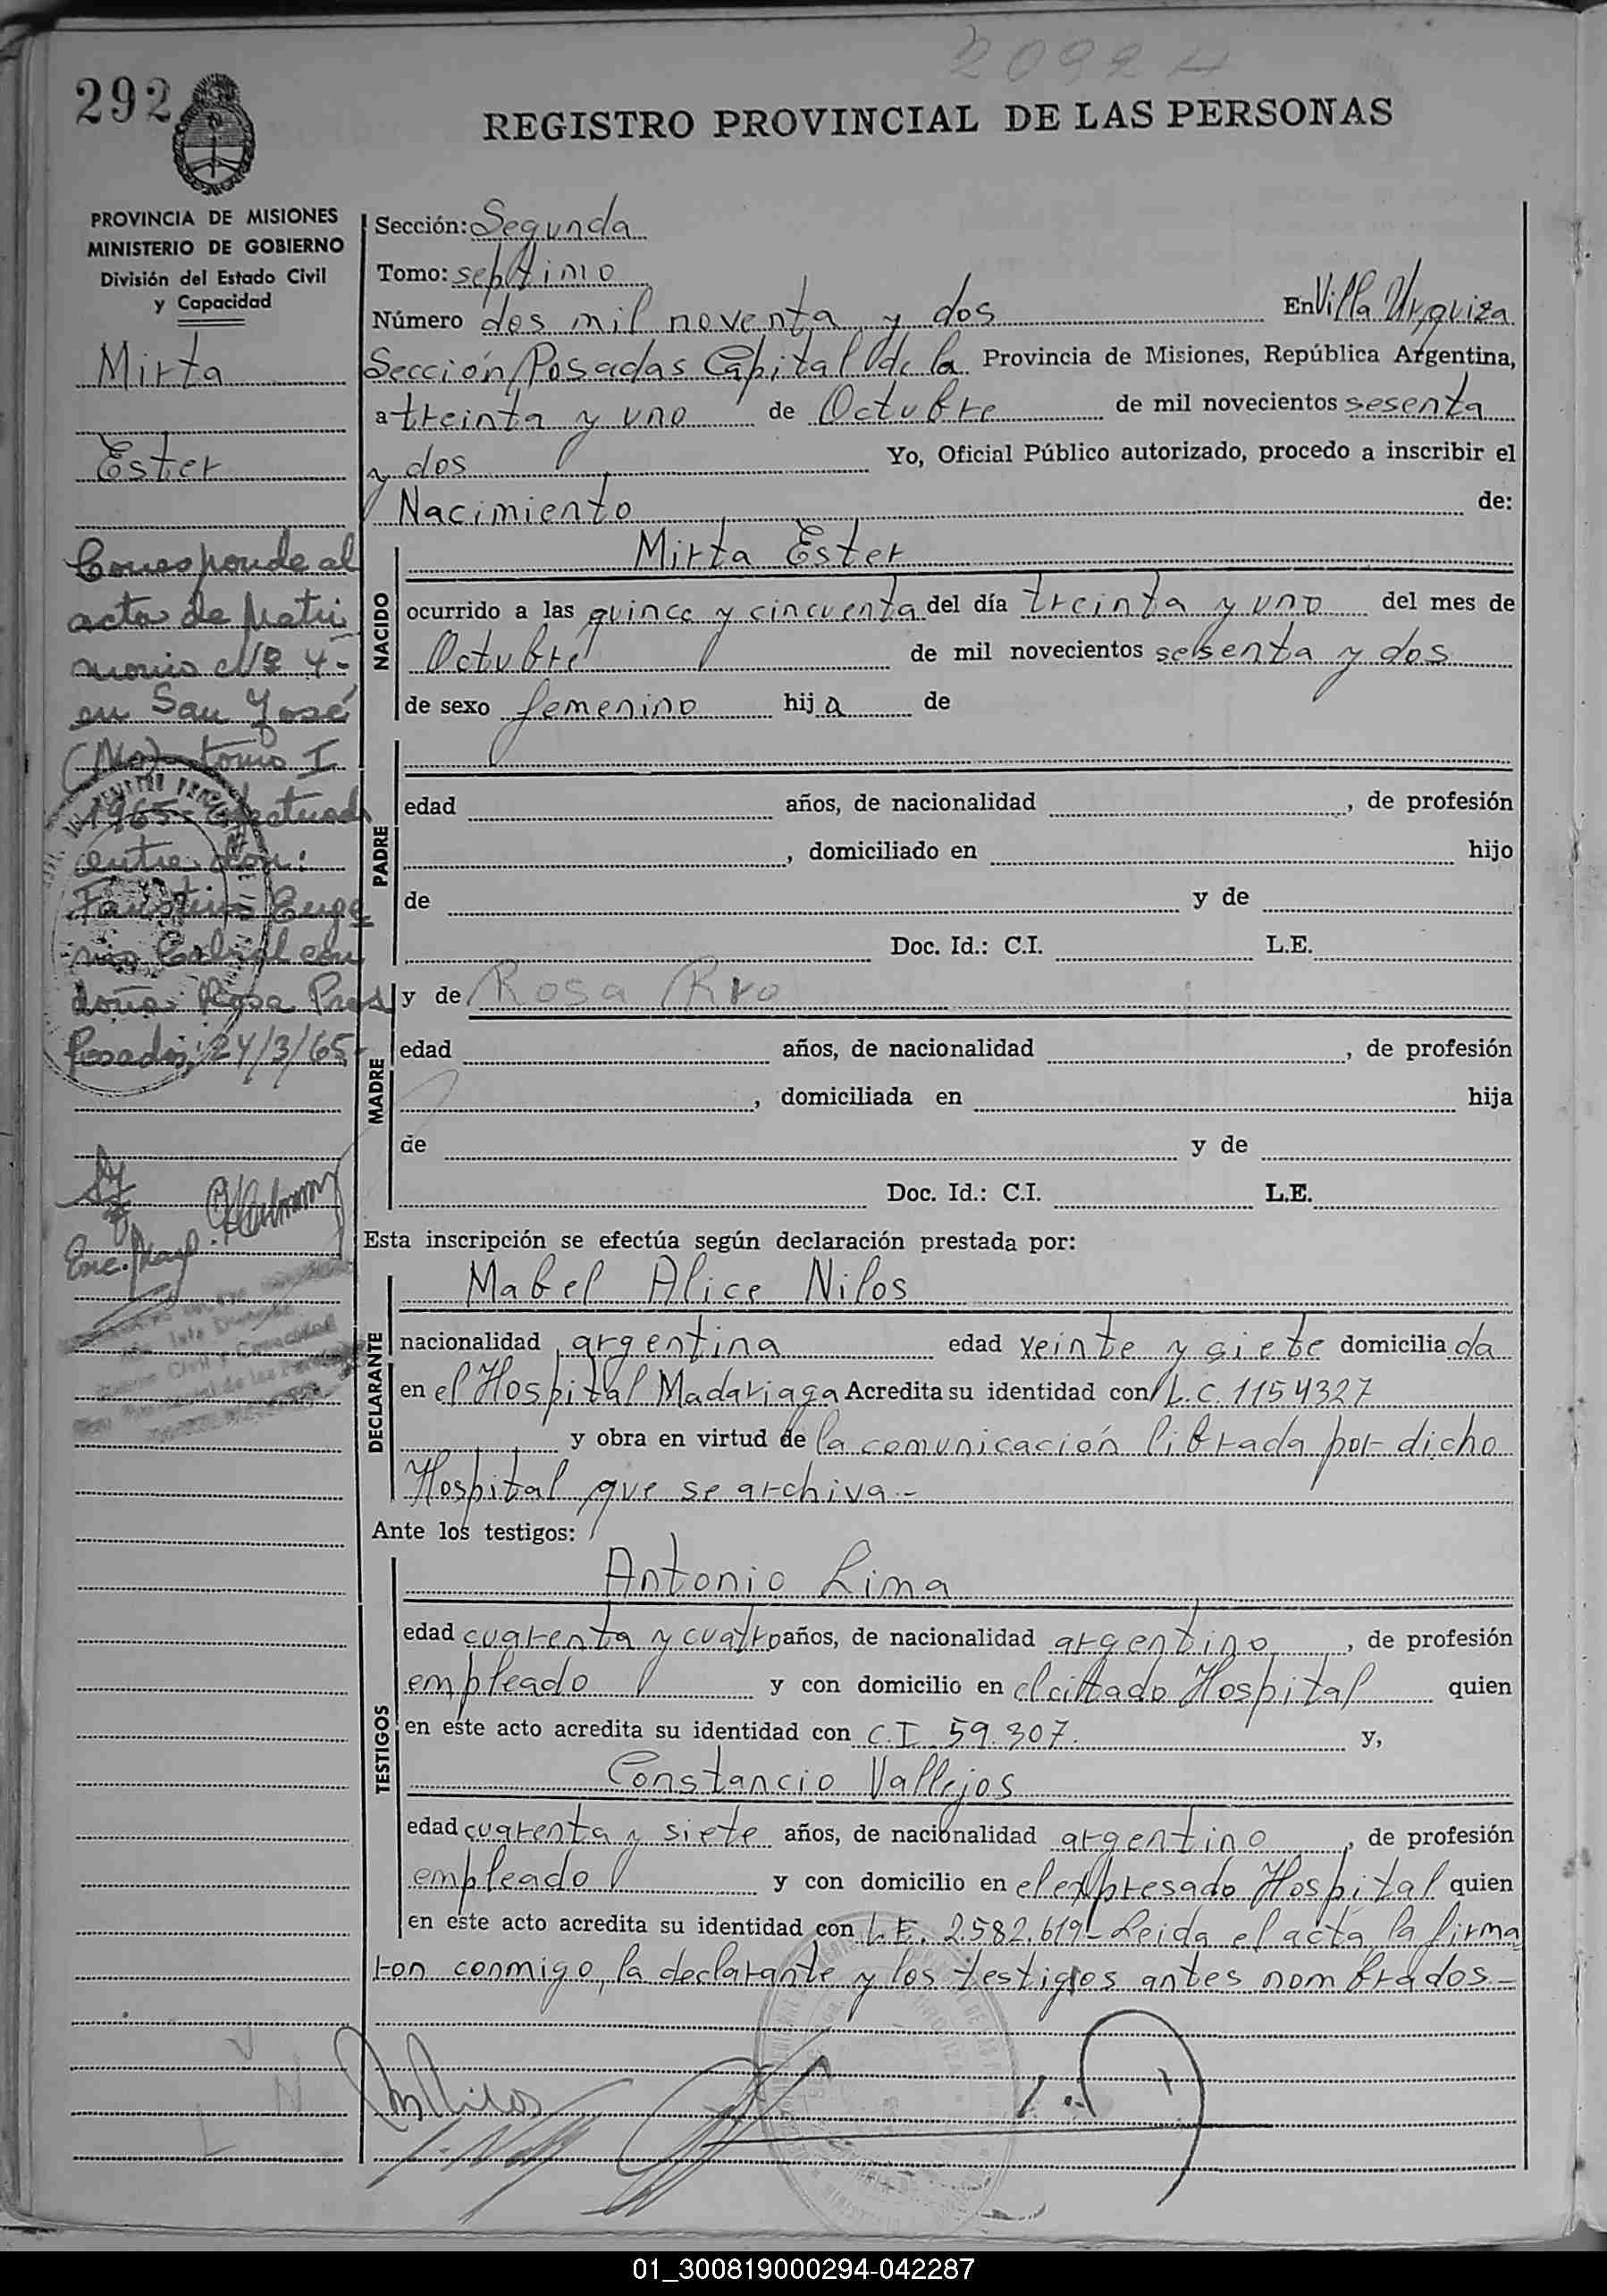 20924
292
REGISTRO PROVINCIAL DE LAS PERSONAS
PROVINCIA DE MISIONES
MINISTERIO DE GOBIERNO
División del Estado Civil
y Capacidad
Mirta
Ester
Corresponde al
acta de Matri
monio Nº 4-
en San José
(Ms) tomo I
1965- efectuad
entre don:
Faustino Euge
nio Cabral con
doña Rosa
Posadas, 24/3/65-
Sección: Segunda
Tomo: septimo
Número dos mil noventa y dos En Villa Urquiza
Sección Posadas Capital de la Provincia de Misiones, República Argentina,
a treinta y uno de Octubre de mil novecientos sesenta
y dos Yo, Oficial Público autorizado, procedo a inscribir el
Nacimiento de:
NACIDO
Mirta Ester
ocurrido a las quince y cincuenta del día treinta y uno del mes de
Octubre de mil novecientos sesenta y dos
de sexo femenino hija de
PADRE
edad años, de nacionalidad , de profesión
, domiciliado en hijo
de y de
Doc. Id.: C.I. L.E.
y de Rosa
MADRE
edad años, de nacionalidad , de profesión
, domiciliada en hija
de y de
Doc. Id.: C.I. L.E.
Esta inscripción se efectúa según declaración prestada por:
DECLARANTE
Mabel Alice Nilos
nacionalidad argentina edad veinte y siete domiciliada
en el Hospital Madariaga Acredita su identidad con L.C. 1154327
y obra en virtud de la comunicación librada por dicho
Hospital que se archiva.-
Ante los testigos:
TESTIGOS
Antonio Lima
edad cuarenta y cuatro años, de nacionalidad argentino, de profesión
empleado y con domicilio en el citado Hospital quien
en este acto acredita su identidad con C.I. 59.307. y,
Constancio Vallejos
edad cuarenta y siete años, de nacionalidad argentino, de profesión
empleado y con domicilio en el expresado Hospital quien
en este acto acredita su identidad con L.E. 2.582.619- Leida el acta, la firma
ron conmigo, la declarante y los testigos antes nombrados.-
01_300819000294-042287